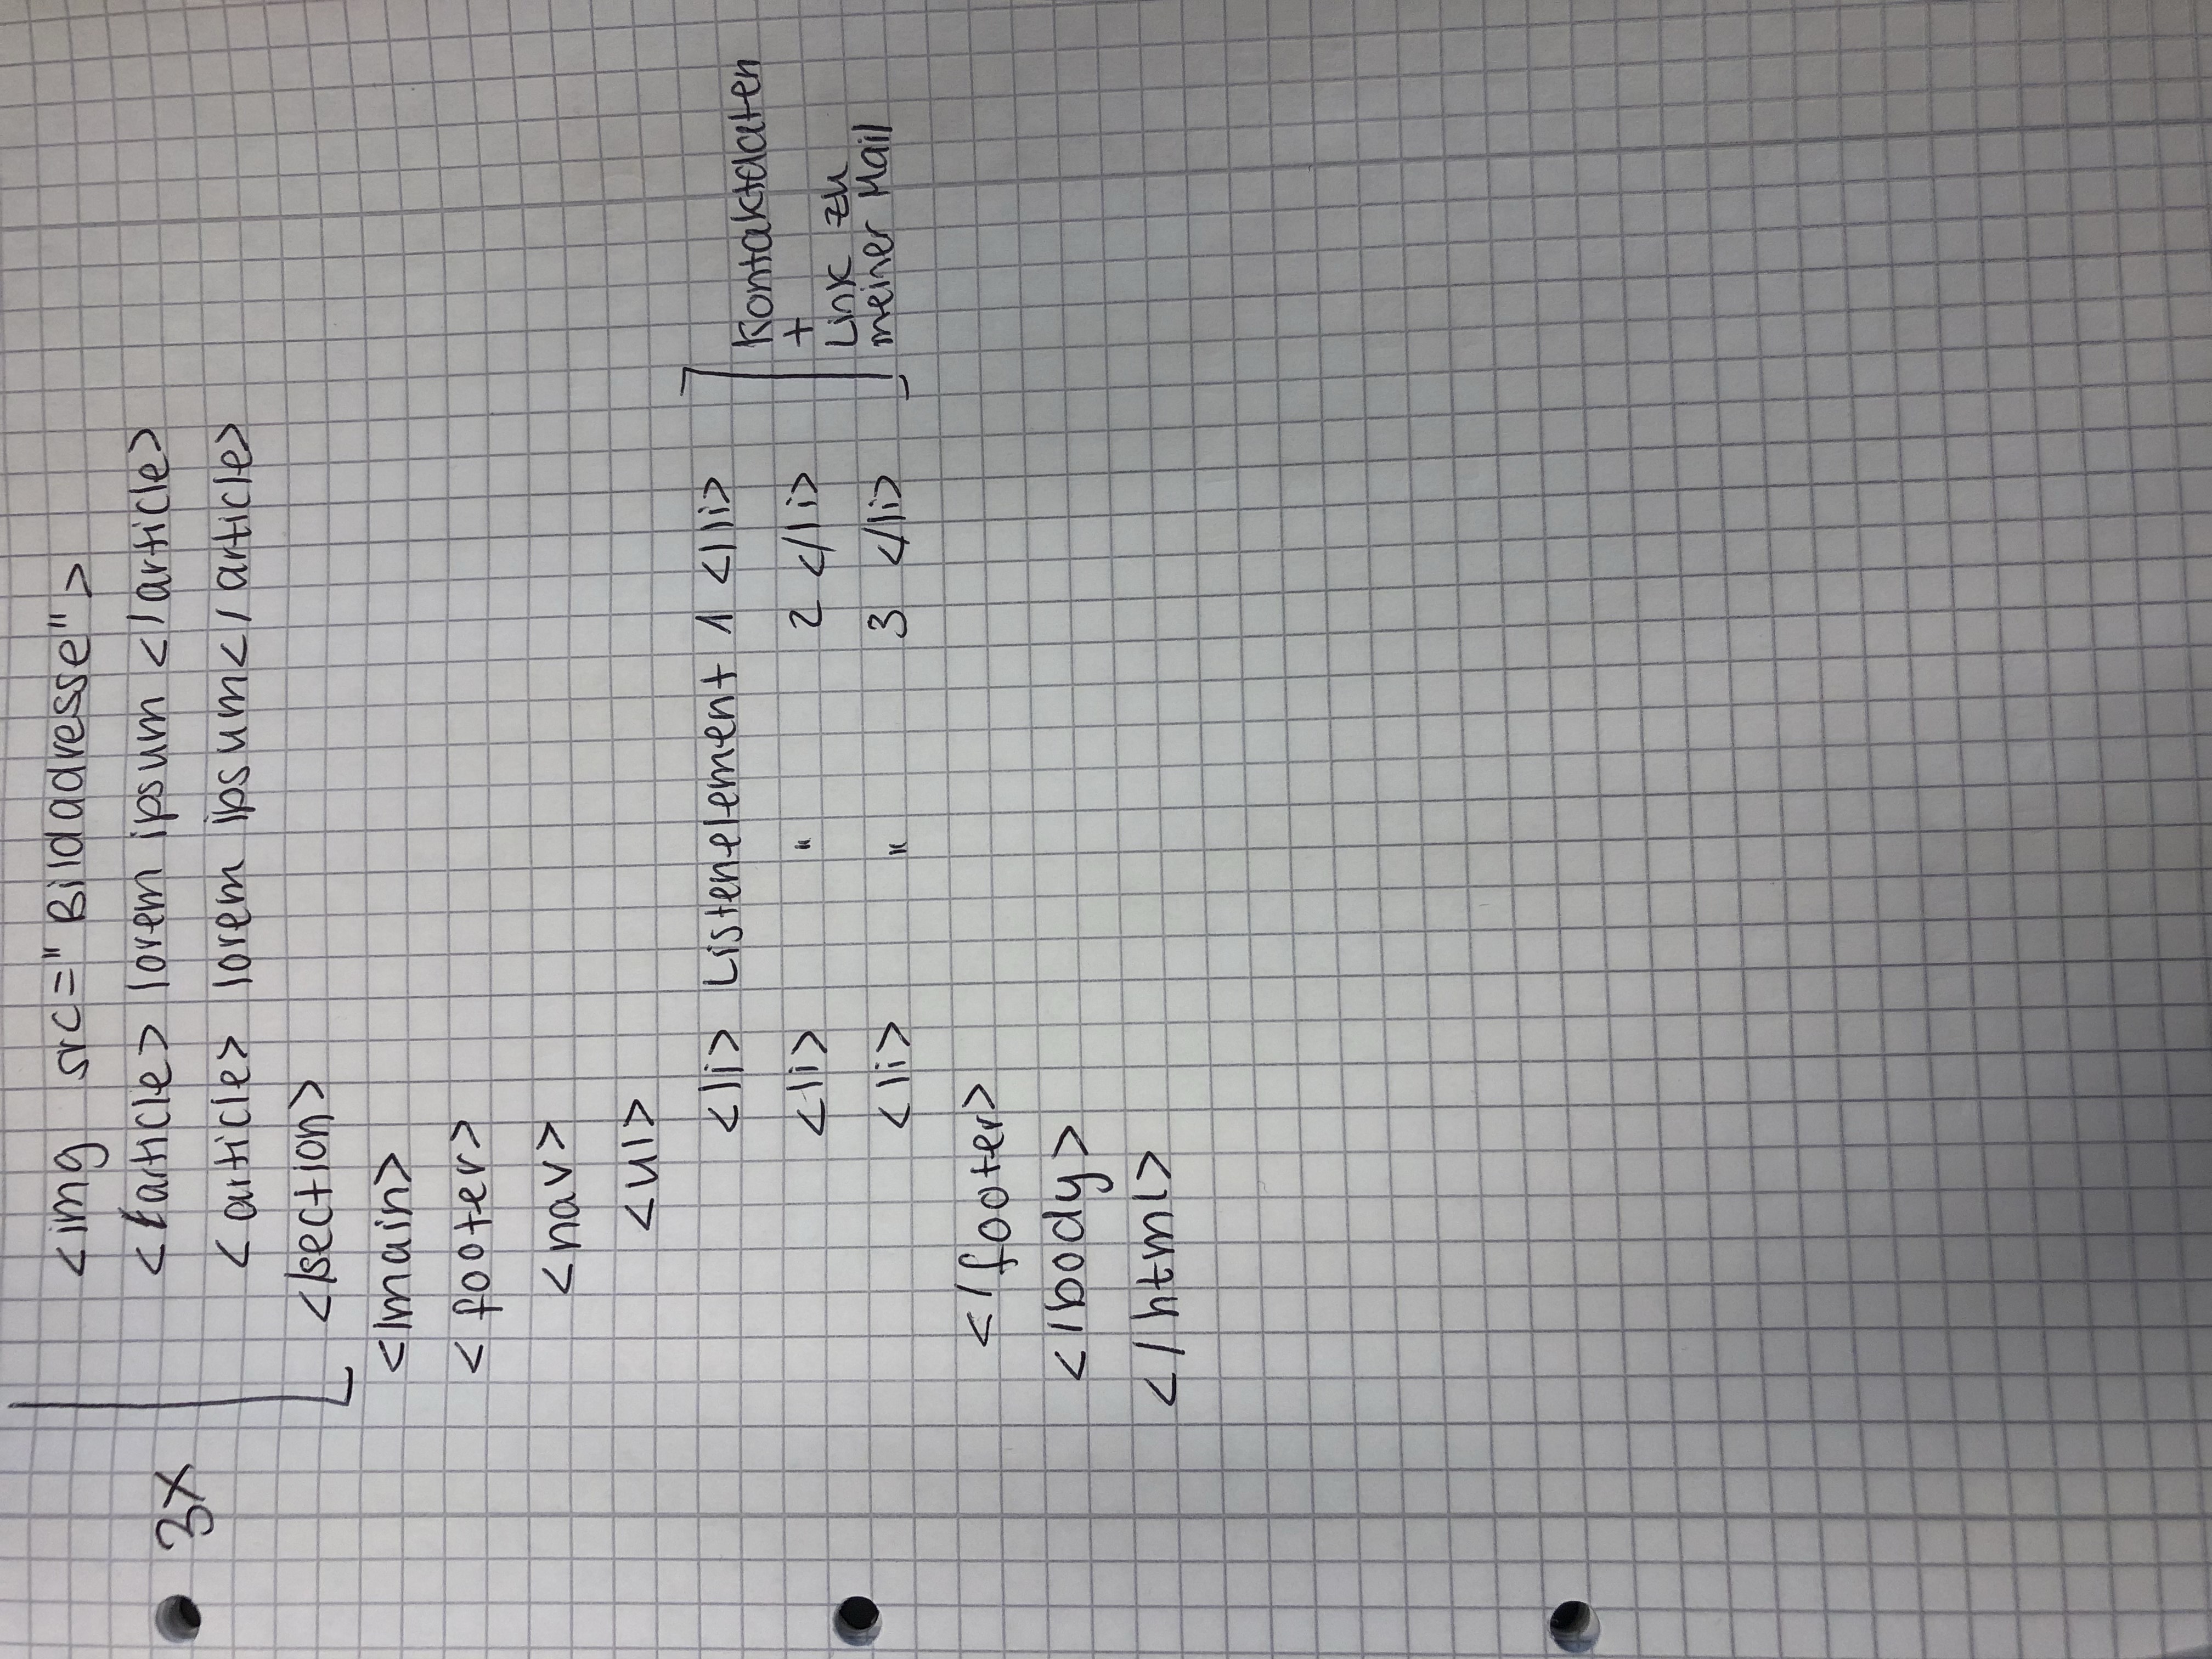 <img src="Bildadresse">
3x
<article> lorem ipsum </article>
<article> lorem ipsum </article>
</section>
</main>
<footer>
<nav>
<ul>
<li> Listenelement 1 </li>
<li> " 2 </li>
<li> " 3 </li>
Kontaktdaten
+
Link zu
meiner Mail
</footer>
</body>
</html>